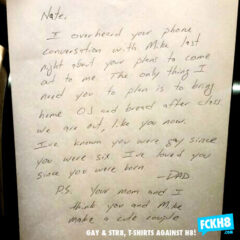 Nate,
I overheard your phone
conversation with Mike last
night about your plans to come
out to me. The only thing I
need you to plan is to bring
home OJ and bread after class.
We are out, like you now.
I've known you were gay since
you were six. I've loved you
since you were born.
- DAD
P.S. Your mom and I
think you and Mike
make a cute couple
GAY & STR8, T-SHIRTS AGAINST H8!
FCKH8
.COM